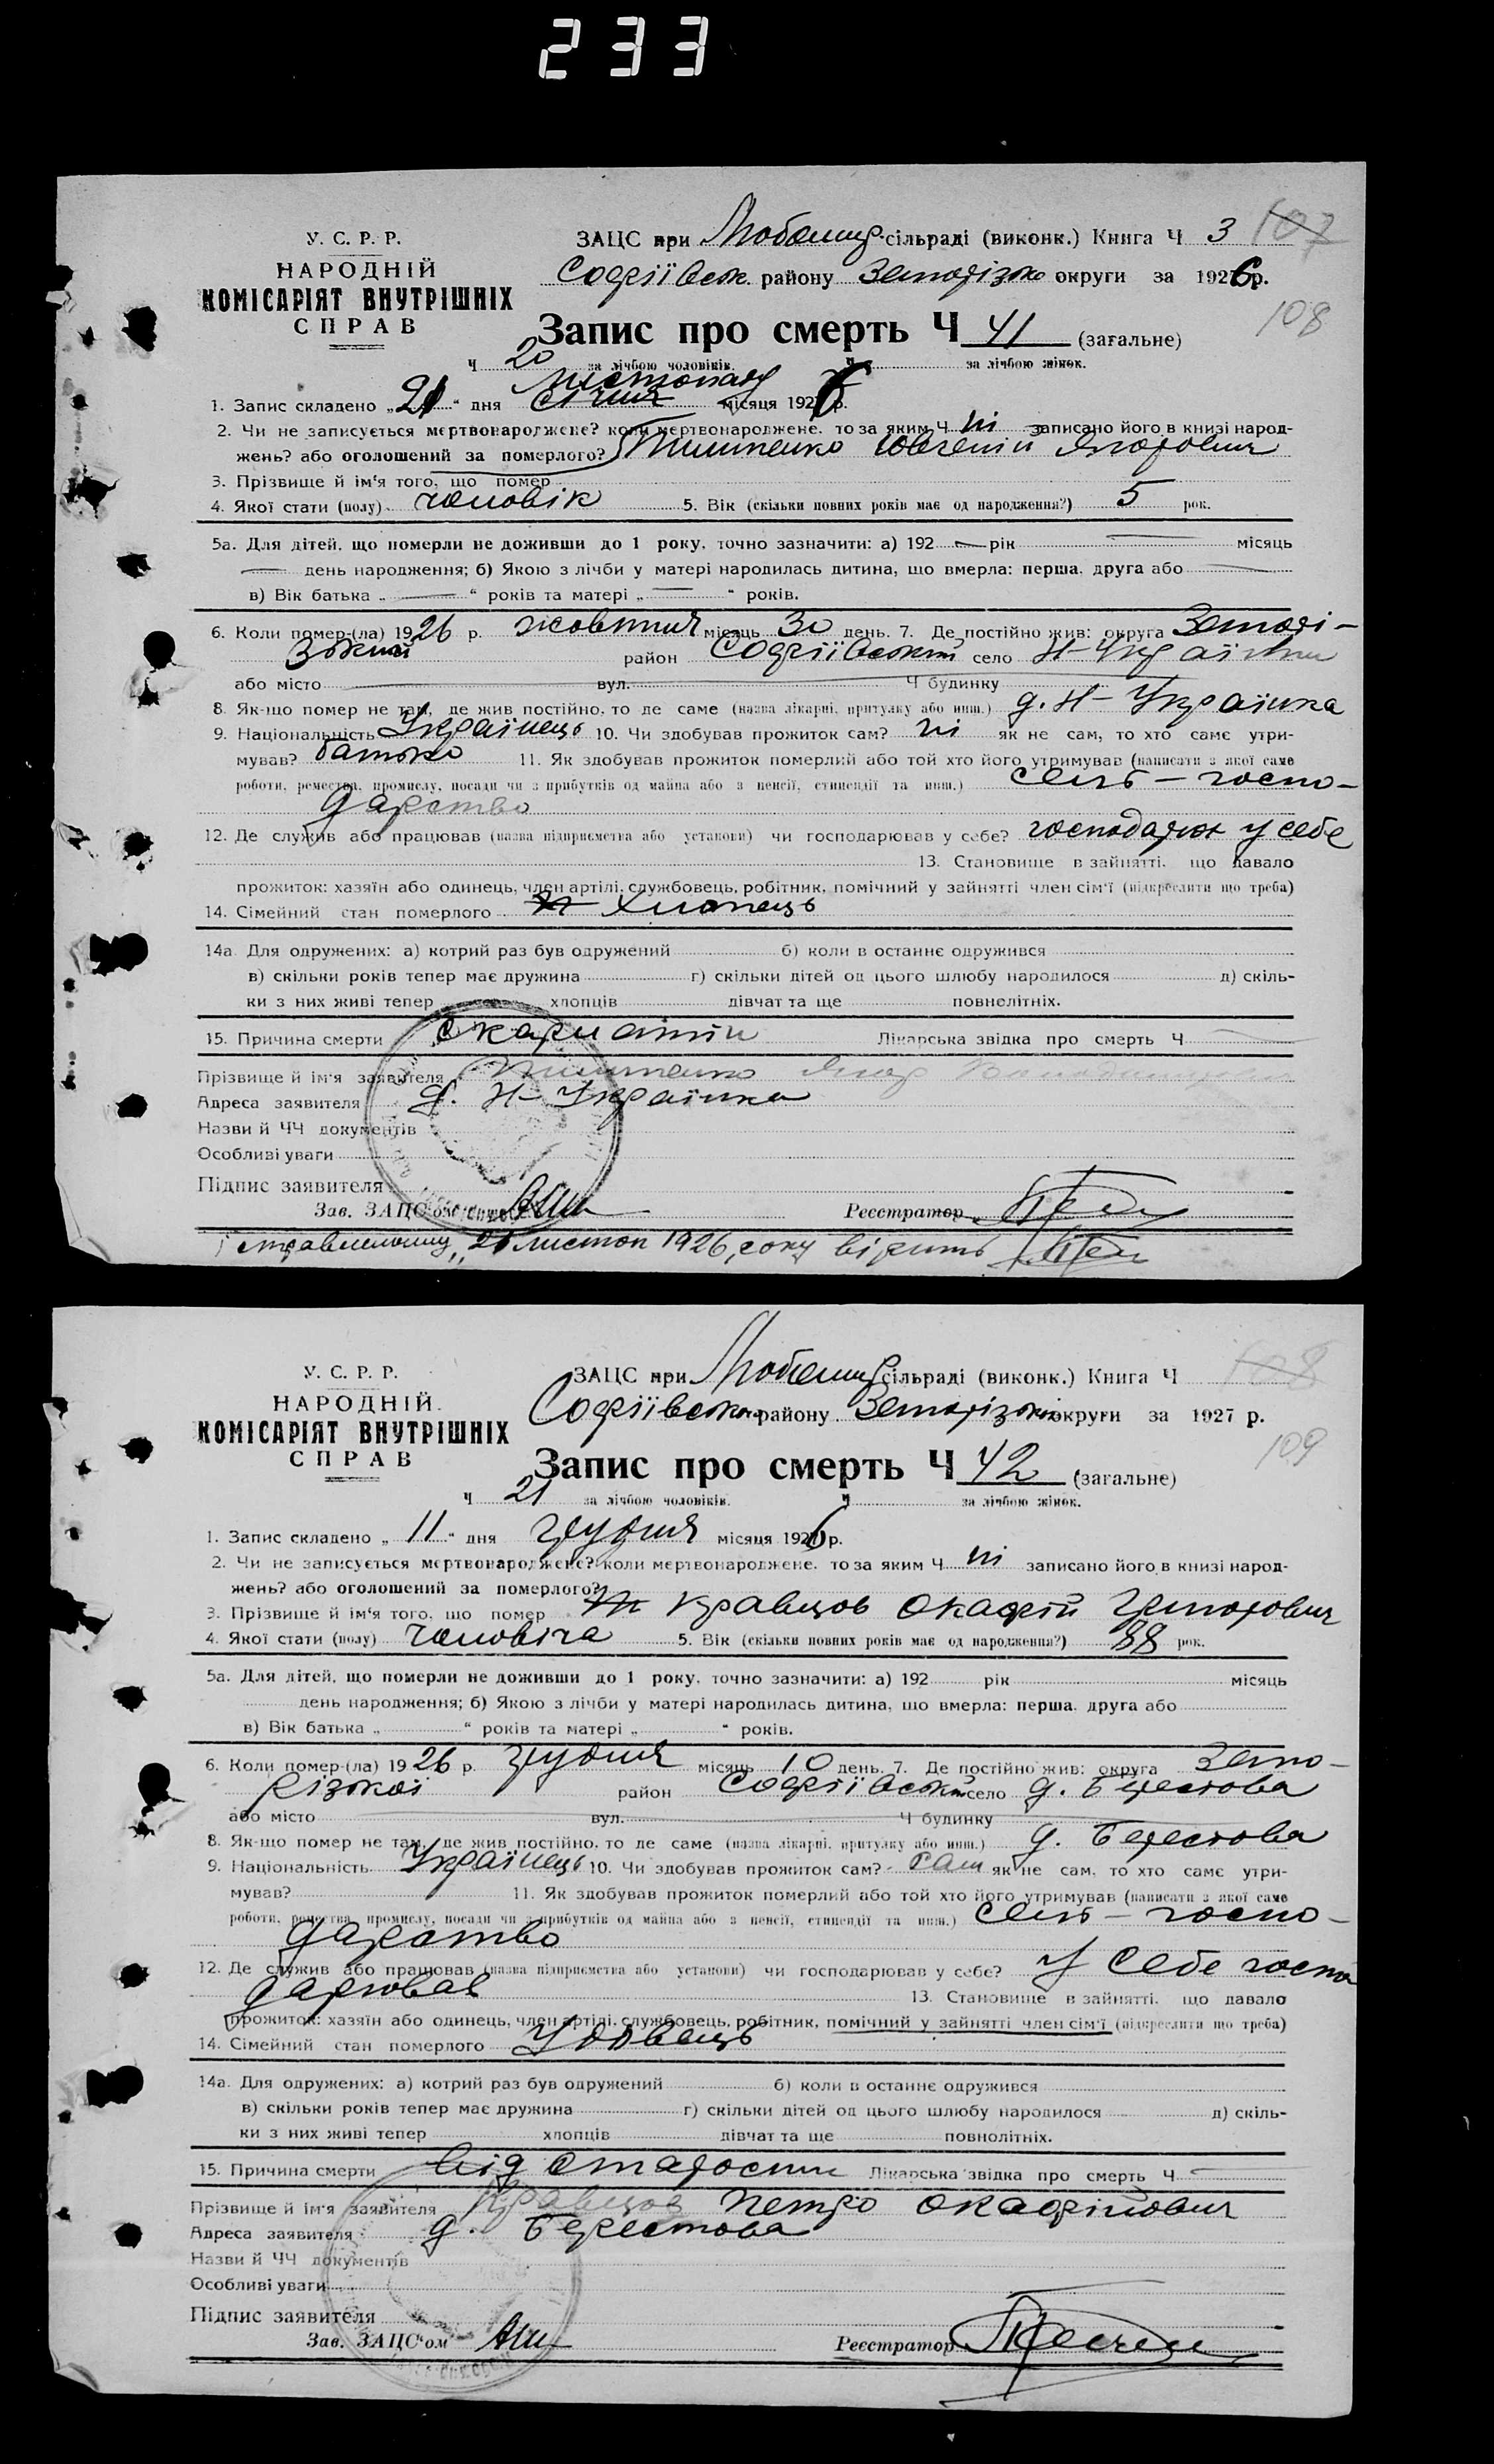 233
107
У. С. Р. Р.
НАРОДНІЙ
КОМІСАРІЯТ ВНУТРІШНІХ
СПРАВ
ЗАЦС при Любомир. сільраді (виконк.) Книга Ч 3
Софіївськ. району Запорізько округи за 1926 р.
108
Запис про смерть Ч 41 (загальне)
Ч 20 за лічбою чоловіків. Ч за лічбою жінок.
листопад
1. Запис складено „21“ дня січня місяця 1926 р.
2. Чи не записується мертвонароджене? коли мертвонароджене, то за яким Ч ні записано його в книзі народ-
жень? або оголошений за померлого? Тимченко Євгеній Ягорович
3. Прізвище й ім'я того, що помер
4. Якої стати (полу) чоловік 5. Вік (скільки повних років має од народження?) 5 рок.
5а. Для дітей, що померли не доживши до 1 року, точно зазначити: а) 192 — рік — місяць
— день народження; б) Якою з лічби у матері народилась дитина, що вмерла: перша, друга або —
в) Вік батька „ — “ років та матері „ — “ років.
6. Коли помер-(ла) 1926 р. жовтня місяць 30 день. 7. Де постійно жив: округа Запорі-
зький район Софіївський село Н-Українки
або місто вул. Ч будинку
8. Як-що помер не там, де жив постійно, то де саме (назва лікарні, притулку або инш.) д. Н-Українка
9. Національність Українець 10. Чи здобував прожиток сам? ні як не сам, то хто саме утри-
мував? батько 11. Як здобував прожиток померлий або той хто його утримував (написати з якої саме
роботи, ремества, промислу, посади чи з прибутків од майна або з пенсії, стипендії та инш.) сільс-госпо-
дарство
12. Де служив або працював (назва підприємства або установи) чи господарював у себе? господарює у себе
13. Становище в зайнятті, що давало
прожиток: хазяїн або одинець, член артілі, службовець, робітник, помічний у зайнятті член сім'ї (підкреслити що треба)
14. Сімейний стан померлого Хлопець
14а. Для одружених: а) котрий раз був одружений б) коли в останнє одружився
в) скільки років тепер має дружина г) скільки дітей од цього шлюбу народилося д) скіль-
ки з них живі тепер хлопців дівчат та ще повнолітніх.
15. Причина смерти Скарлатіни Лікарська звідка про смерть Ч —
Прізвище й ім'я заявителя Тимченко Ягор
Адреса заявителя д. Н-Українка
Назви й ЧЧ документів
Особливі уваги
Підпис заявителя
Зав. ЗАЦС'ом Реєстратор
і справленому „21 листоп 1926 року вірить
108
У. С. Р. Р.
НАРОДНІЙ
КОМІСАРІЯТ ВНУТРІШНІХ
СПРАВ
ЗАЦС при Любомир сільраді (виконк.) Книга Ч
Софіївсько району Запорізької округи за 1927 р.
109
Запис про смерть Ч 42 (загальне)
Ч 21 за лічбою чоловіків. Ч за лічбою жінок.
1. Запис складено „11“ дня грудня місяця 1926 р.
2. Чи не записується мертвонароджене? коли мертвонароджене, то за яким Ч ні записано його в книзі народ-
жень? або оголошений за померлого?
3. Прізвище й ім'я того, що помер Кравцов Окафій Григорович
4. Якої стати (полу) чоловіча 5. Вік (скільки повних років має од народження?) 88 рок.
5а. Для дітей, що померли не доживши до 1 року, точно зазначити: а) 192 рік місяць
день народження; б) Якою з лічби у матері народилась дитина, що вмерла: перша, друга або
в) Вік батька „ “ років та матері „ “ років.
6. Коли помер-(ла) 1926 р. грудня місяць 10 день. 7. Де постійно жив: округа Запо-
різької район Софіївський село д. Берестова
або місто вул. Ч будинку
8. Як-що помер не там, де жив постійно, то де саме (назва лікарні, притулку або инш.) д. Берестова
9. Національність Українець 10. Чи здобував прожиток сам? сам як не сам, то хто саме утри-
мував? 11. Як здобував прожиток померлий або той хто його утримував (написати з якої саме
роботи, ремества, промислу, посади чи з прибутків од майна або з пенсії, стипендії та инш.) сільс-госпо-
дарство
12. Де служив або працював (назва підприємства або установи) чи господарював у себе? У себе госпо
дарював 13. Становище в зайнятті, що давало
прожиток: хазяїн або одинець, член артілі, службовець, робітник, помічний у зайнятті член сім'ї (підкреслити що треба)
14. Сімейний стан померлого Удовець
14а. Для одружених: а) котрий раз був одружений б) коли в останнє одружився
в) скільки років тепер має дружина г) скільки дітей од цього шлюбу народилося д) скіль-
ки з них живі тепер хлопців дівчат та ще повнолітніх.
15. Причина смерти від старости Лікарська звідка про смерть Ч —
Прізвище й ім'я заявителя Кравцов Петро Окафійович
Адреса заявителя д. Берестова
Назви й ЧЧ документів
Особливі уваги
Підпис заявителя
Зав. ЗАЦС'ом Реєстратор